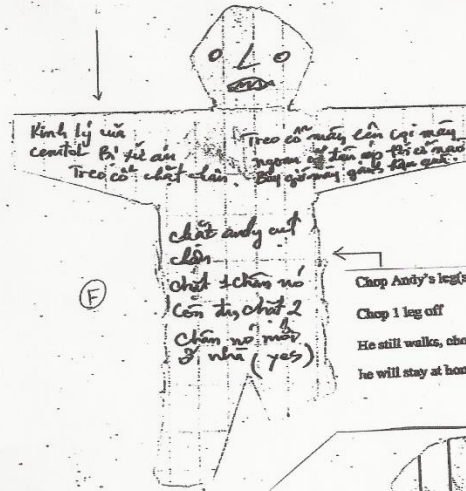 Kinh lý của
Bị xử án
Treo cổ chặt chân.
Treo cổ mày lên coi mày
ngoan cố đàn áp
Bây giờ mày gánh hậu quả.
chặt andy cụt
chân
chặt 1 chân nó
Còn đi, chặt 2
Chân nó mới
ở nhà (yes)
F
Chop Andy's leg(s
Chop 1 leg off
He still walks, cho
he will stay at hom